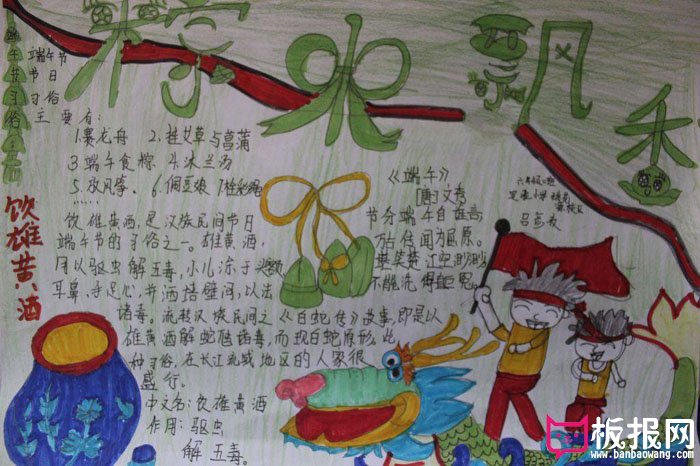 粽水飘香
端午节习俗:
端午节
节日
习俗
主要有:
1.赛龙舟 2.挂艾草与菖蒲
3.端午食粽 4.沐兰汤
5.放风筝 6.佩豆娘 7.拴彩绳
......
饮雄黄酒
饮雄黄酒,是汉族民间节日
端午节的习俗之一。雄黄酒,
用以驱虫解五毒,小儿涂于头额、
耳鼻、手足心,并洒墙壁间,以法
诸毒。流转汉族民间之《白蛇传》故事,即是以
雄黄酒解蛇虺诸毒,而现白蛇原形。此
种习俗,在长江流域地区的人家很
盛行。
中文名:饮雄黄酒
作用:驱虫
解五毒。
《端午》
[唐]文秀
节分端午自谁言
万古传闻为屈原。
堪笑楚江空渺渺
不能洗得直臣冤。
板报网
www.banbaowang.com